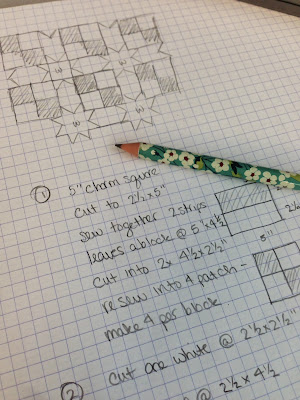 W
W
W
①
5" charm square
cut to 2½ x 5"
sew together 2 strips
leaves a block @ 5" x 4½
2½
cut into 2 x 4½ x 2½"
5"
resew into 4 patch -
make 4 per block
②
cut one white @ 2½ x 2½"
@ 2½ x 4½